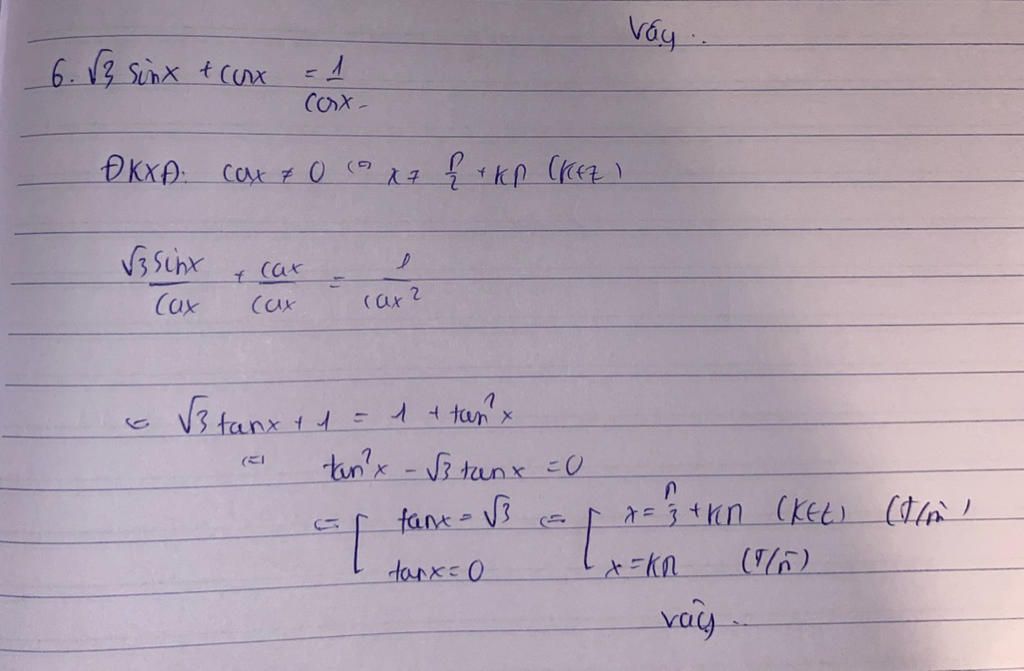 Vậy ..
6. √3 sinx + cosx = 1/cosx
ĐKXĐ: cosx ≠ 0 ⇔ x ≠ π/2 + kπ (k∈Z)
√3 sinx/cosx + cosx/cosx = 1/cosx²
⇔ √3 tanx + 1 = 1 + tan²x
⇔ tan²x - √3 tanx = 0
⇔ [ tanx = √3 ⇔ [ x = π/3 + kπ (k∈Z) (T/m)
tanx = 0 x = kπ (T/m)
vậy ..